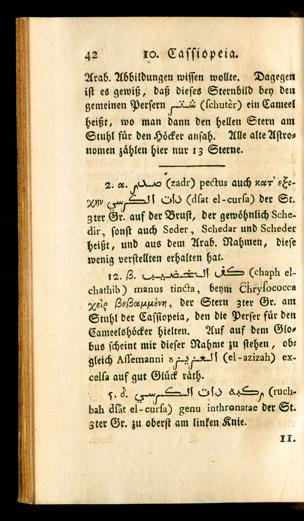 42 10. Cassiopeia.
Arab. Abbildungen wissen wollte. Dagegen
ist es gewiß, daß dieses Sternbild bey den
gemeinen Persern شتر (schutèr) ein Cameel
heißt, wo man dann den hellen Stern am
Stuhl für den Höcker ansah. Alle alte Astro-
nomen zählen hier nur 13 Sterne.
2. α. صدر (zadr) pectus auch κατ' εξο-
χην ذات الكرسي (dsat el-cursa) der St.
3ter Gr. auf der Brust, der gewöhnlich Sche-
dir, sonst auch Seder, Schedar und Scheder
heißt, und aus dem Arab. Nahmen, diese
wenig verstellten erhalten hat.
12. β. كف الخضيب (chaph el-
chathib) manus tincta, beym Chrysococca
χειρ βεβαμμένη, der Stern 3ter Gr. am
Stuhl der Cassiopeia, den die Perser für den
Cameelshöcker hielten. Auf auf dem Glo-
bus scheint mir dieser Nahme zu stehen, ob-
gleich Assemanni العزيزه (el-azizah) ex-
celsa auf gut Glück räth.
5. δ. ركبه ذات الكرسي (ruch-
bah dsat el-cursa) genu inthronatae der St.
3ter Gr. zu oberst am linken Knie.
11.